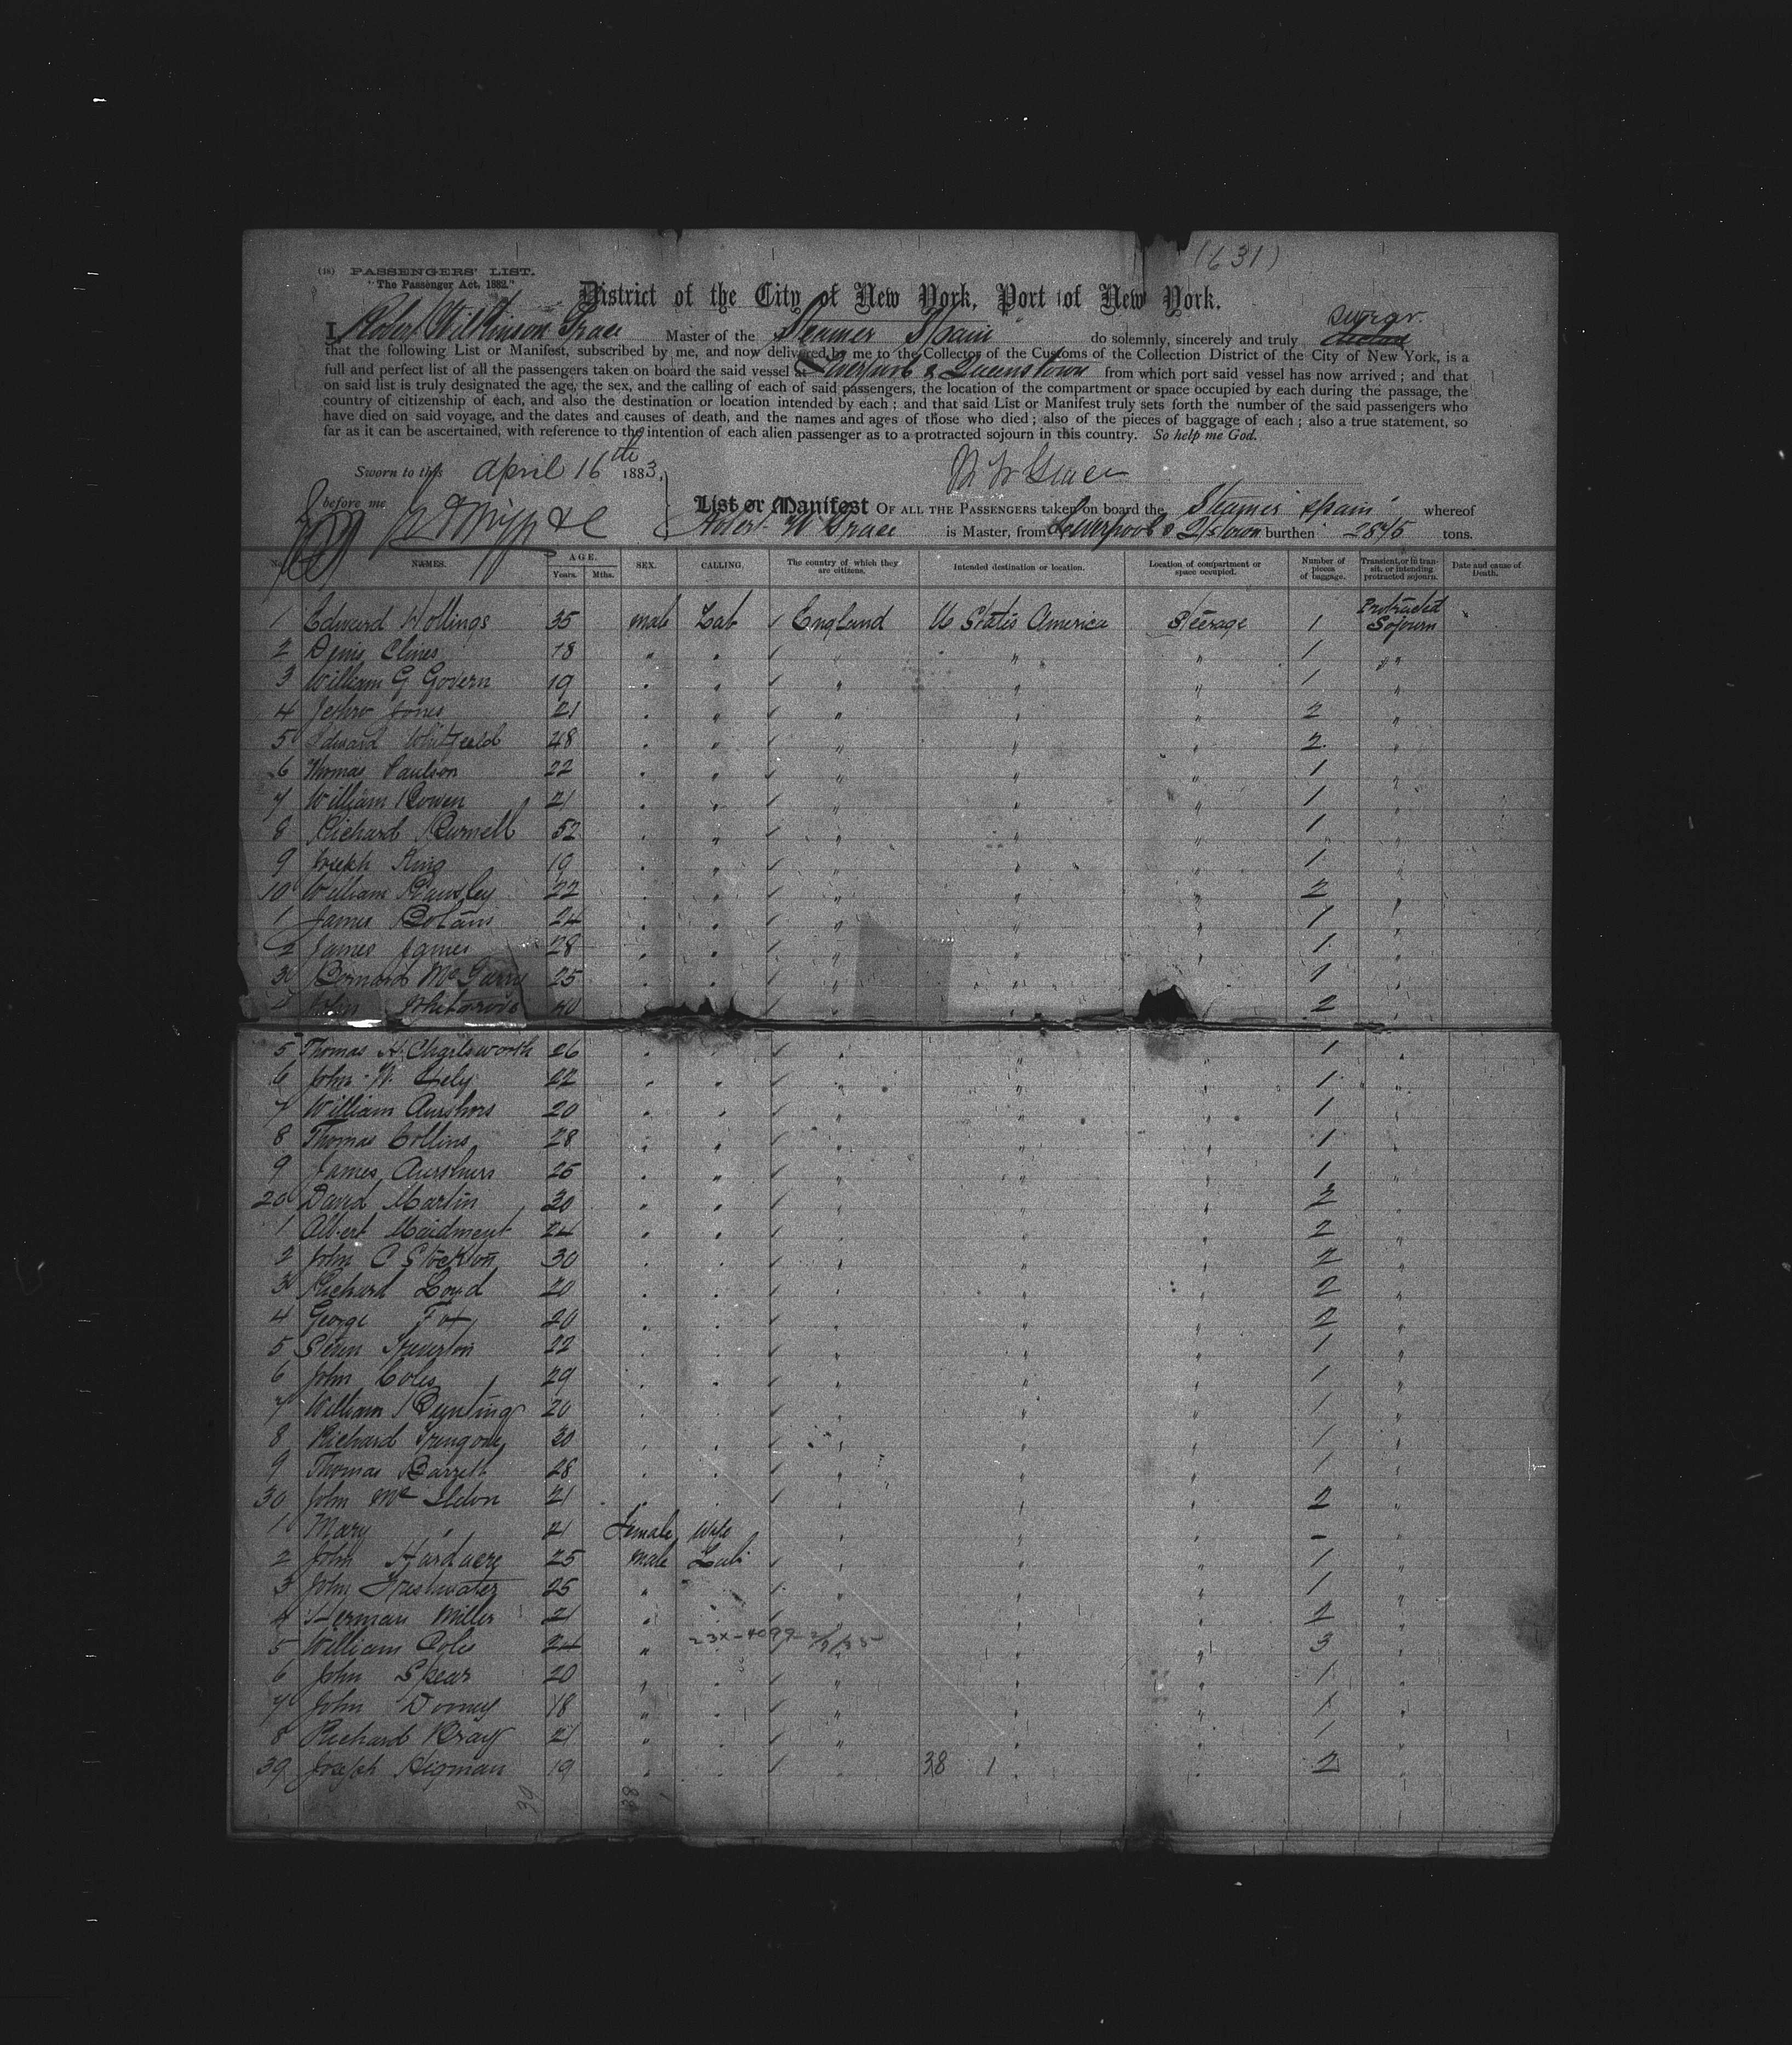 (631)
(18) PASSENGERS' LIST.
"The Passenger Act, 1882."
District of the City of New York, Port of New York.
I, Robert Wilkinson Grace Master of the Steamer Spain do solemnly, sincerely and truly swear
that the following List or Manifest, subscribed by me, and now delivered by me to the Collector of the Customs of the Collection District of the City of New York, is a
full and perfect list of all the passengers taken on board the said vessel at Liverpool & Queenstown from which port said vessel has now arrived; and that
on said list is truly designated the age, the sex, and the calling of each of said passengers, the location of the compartment or space occupied by each during the passage, the
country of citizenship of each, and also the destination or location intended by each; and that said List or Manifest truly sets forth the number of the said passengers who
have died on said voyage, and the dates and causes of death, and the names and ages of those who died; also of the pieces of baggage of each; also a true statement, so
far as it can be ascertained, with reference to the intention of each alien passenger as to a protracted sojourn in this country. So help me God.
Sworn to this April 16th 1883.
R W Grace
before me
List or Manifest OF ALL THE PASSENGERS taken on board the Steamer Spain whereof
Robert W Grace is Master, from Liverpool & Q'stown burthen tons.
No. NAMES. AGE. Years. Mths. SEX. CALLING. The country of which they are citizens. Intended destination or location. Location of compartment or space occupied. Number of pieces of baggage. Transient, or in transit, or intending protracted sojourn. Date and cause of Death.
1 Edward Hollings 35 male Lab England U States America Steerage 1 Protracted Sojourn
2 Denis Clines 18 " " " " " 1 "
3 William G Govern 19 " " " " " 1 "
4 Jethro Jones 21 " " " " " 2 "
5 Edward Whitfield 48 " " " " " 2 "
6 Thomas Paulson 22 " " " " " 1 "
7 William Bowen 21 " " " " " 1 "
8 Richard Burnell 52 " " " " " 1 "
9 King 19 " " " " " 1 "
10 William Bawsley 22 " " " " " 2 "
1 James 24 " " " " " 1 "
2 James James 28 " " " " " 1 "
3 Bernard McGarry 25 " " " " " 1 "
John 40 " " " " " 2 "
5 Thomas H Charlsworth 26 " " " " " 1 "
6 John W. Hely 22 " " " " " 1 "
7 William 20 " " " " " 1 "
8 Thomas Collins 28 " " " " " 1 "
9 James 25 " " " " " 1 "
20 David Martin 30 " " " " " 2 "
1 Albert Maidment 24 " " " " " 2 "
2 John C Stockton 30 " " " " " 2 "
3 Richard Loyd 20 " " " " " 2 "
4 George Fox 20 " " " " " 2 "
5 22 " " " " " 1 "
6 John Coles 29 " " " " " 1 "
7 William Bunting 20 " " " " " 1 "
8 Richard 30 " " " " " 1 "
9 Thomas Barrett 28 " " " " " 1 "
30 John Mc 21 " " " " " 2 "
1 Mary " 21 Female Wife " " " - "
2 John Hardacre 25 male Lab " " " 1 "
3 John Freshwater 25 " " " " " 1 "
4 Herman Miller 21 " " " " " 2 "
5 William Coles 24 " " " " 3 "
6 John Spear 20 " " " " " 1 "
7 John Dooney 18 " " " " " 1 "
8 Richard Bray 21 " " " " " 1 "
39 Joseph Higman 19 " " " 38 1 " " 2 "
39 38 1